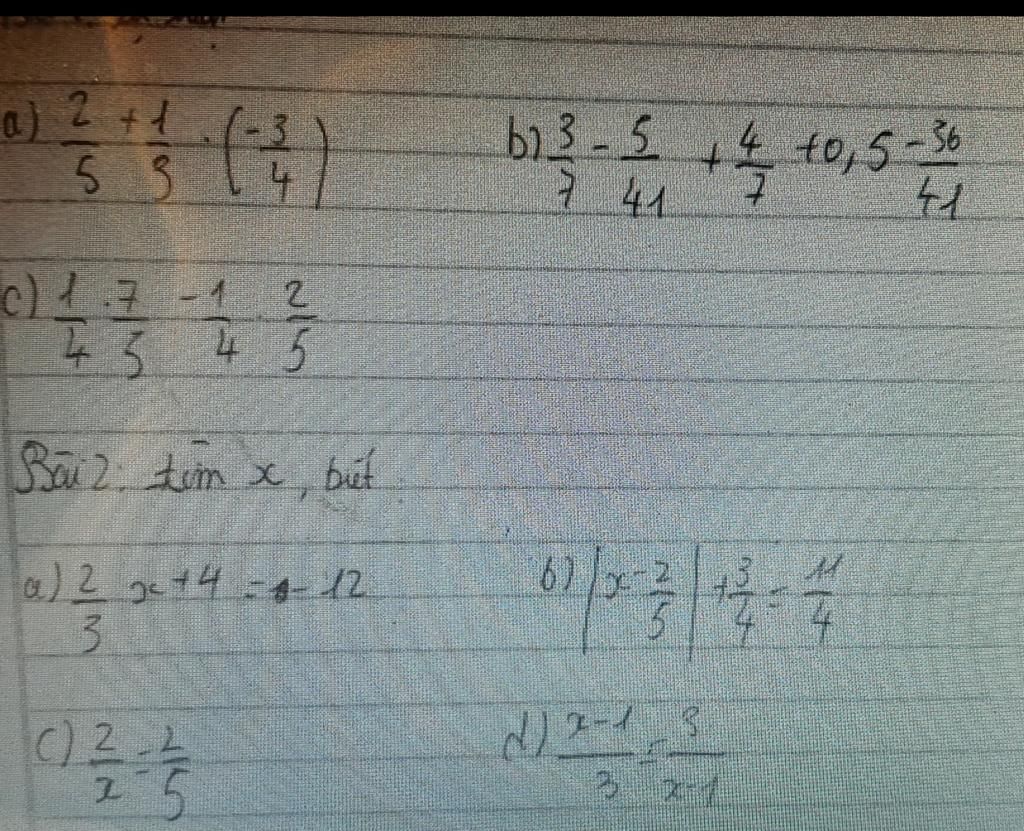 a) 2/5 + 1/3 . (-3/4) b) 3/7 - 5/41 + 4/7 + 0,5 - 36/41
c) 1/4 . 7/5 - 1/4 . 2/5
Bài 2: tìm x, biết
a) 2/3 x + 4 = - 12 b) |x - 2/5| + 3/4 = 11/4
c) 2/x = 2/5 d) x-1/3 = 3/x-1